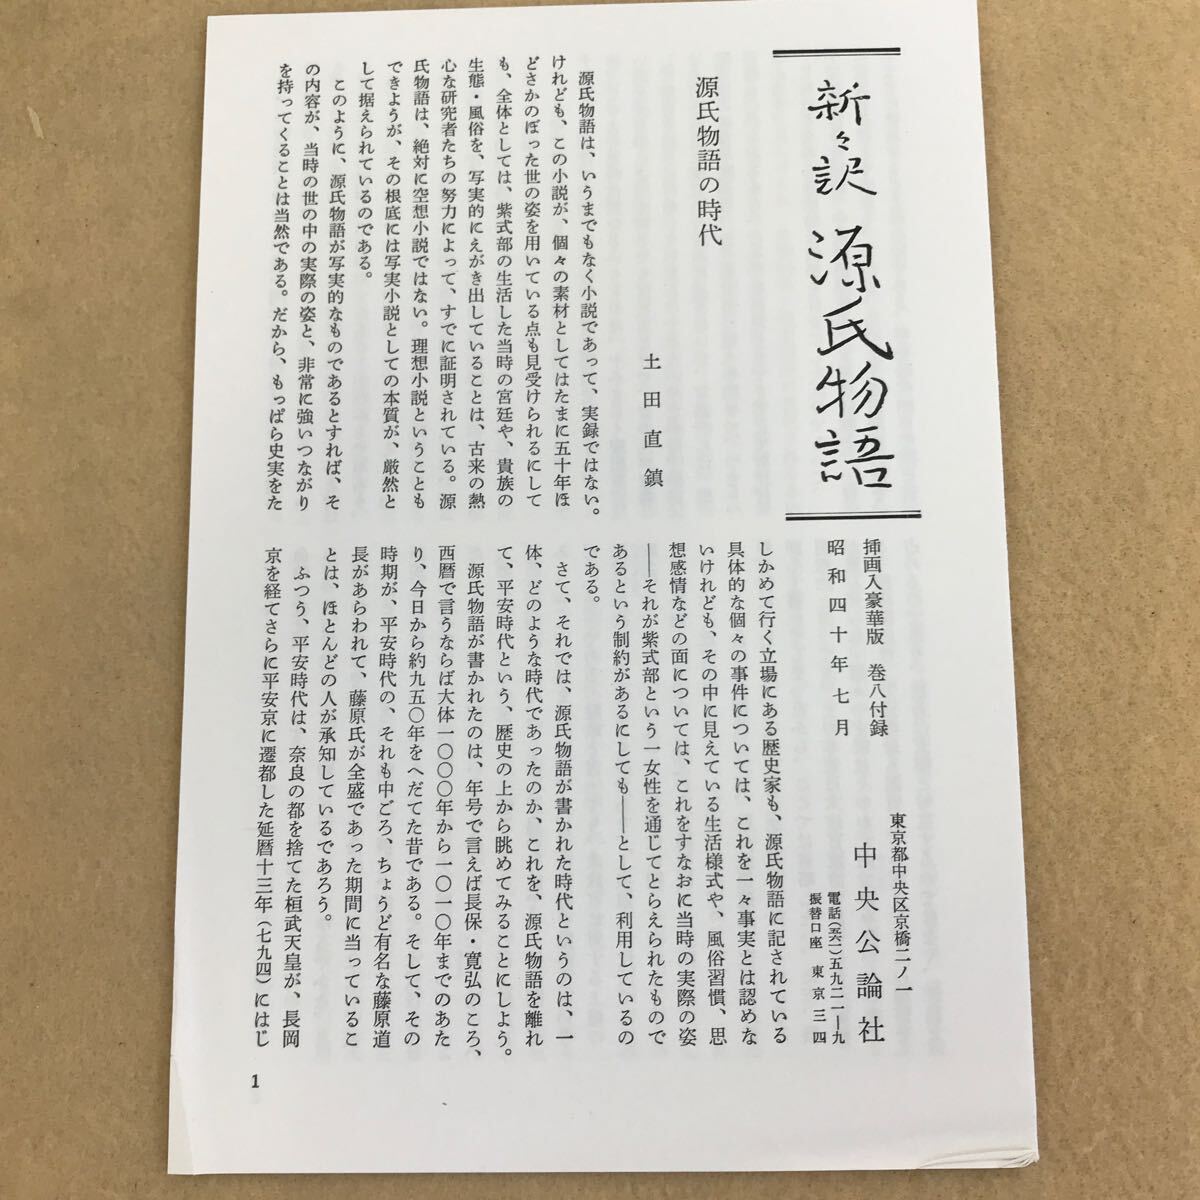 新々訳 源氏物語
挿画入豪華版 巻八付録
昭和四十年七月
東京都中央区京橋二ノ一
中央公論社
電話(五六一)五九二一―九
振替口座 東京三四
源氏物語の時代
土田直鎮
源氏物語は、いうまでもなく小説であって、実録ではない。
けれども、この小説が、個々の素材としてはたまに五十年ほ
どさかのぼった世の姿を用いている点も見受けられるにして
も、全体としては、紫式部の生活した当時の宮廷や、貴族の
生態・風俗を、写実的にえがき出していることは、古来の熱
心な研究者たちの努力によって、すでに証明されている。源
氏物語は、絶対に空想小説ではない。理想小説ということも
できようが、その根底には写実小説としての本質が、厳然と
して据えられているのである。
このように、源氏物語が写実的なものであるとすれば、そ
の内容が、当時の世の中の実際の姿と、非常に強いつながり
を持ってくることは当然である。だから、もっぱら史実をた
しかめて行く立場にある歴史家も、源氏物語に記されている
具体的な個々の事件については、これを一々事実とは認めな
いけれども、その中に見えている生活様式や、風俗習慣、思
想感情などの面については、これをすなおに当時の実際の姿
――それが紫式部という一女性を通じてとらえられたもので
あるという制約があるにしても――として、利用しているの
である。
さて、それでは、源氏物語が書かれた時代というのは、一
体、どのような時代であったのか、これを、源氏物語を離れ
て、平安時代という、歴史の上から眺めてみることにしよう。
源氏物語が書かれたのは、年号で言えば長保・寛弘のころ、
西暦で言うならば大体一〇〇〇年から一〇一〇年までのあた
り、今日から約九五〇年をへだてた昔である。そして、その
時期が、平安時代の、それも中ごろ、ちょうど有名な藤原道
長があらわれて、藤原氏が全盛であった期間に当っているこ
とは、ほとんどの人が承知しているであろう。
ふつう、平安時代は、奈良の都を捨てた桓武天皇が、長岡
京を経てさらに平安京に遷都した延暦十三年(七九四)にはじ
1